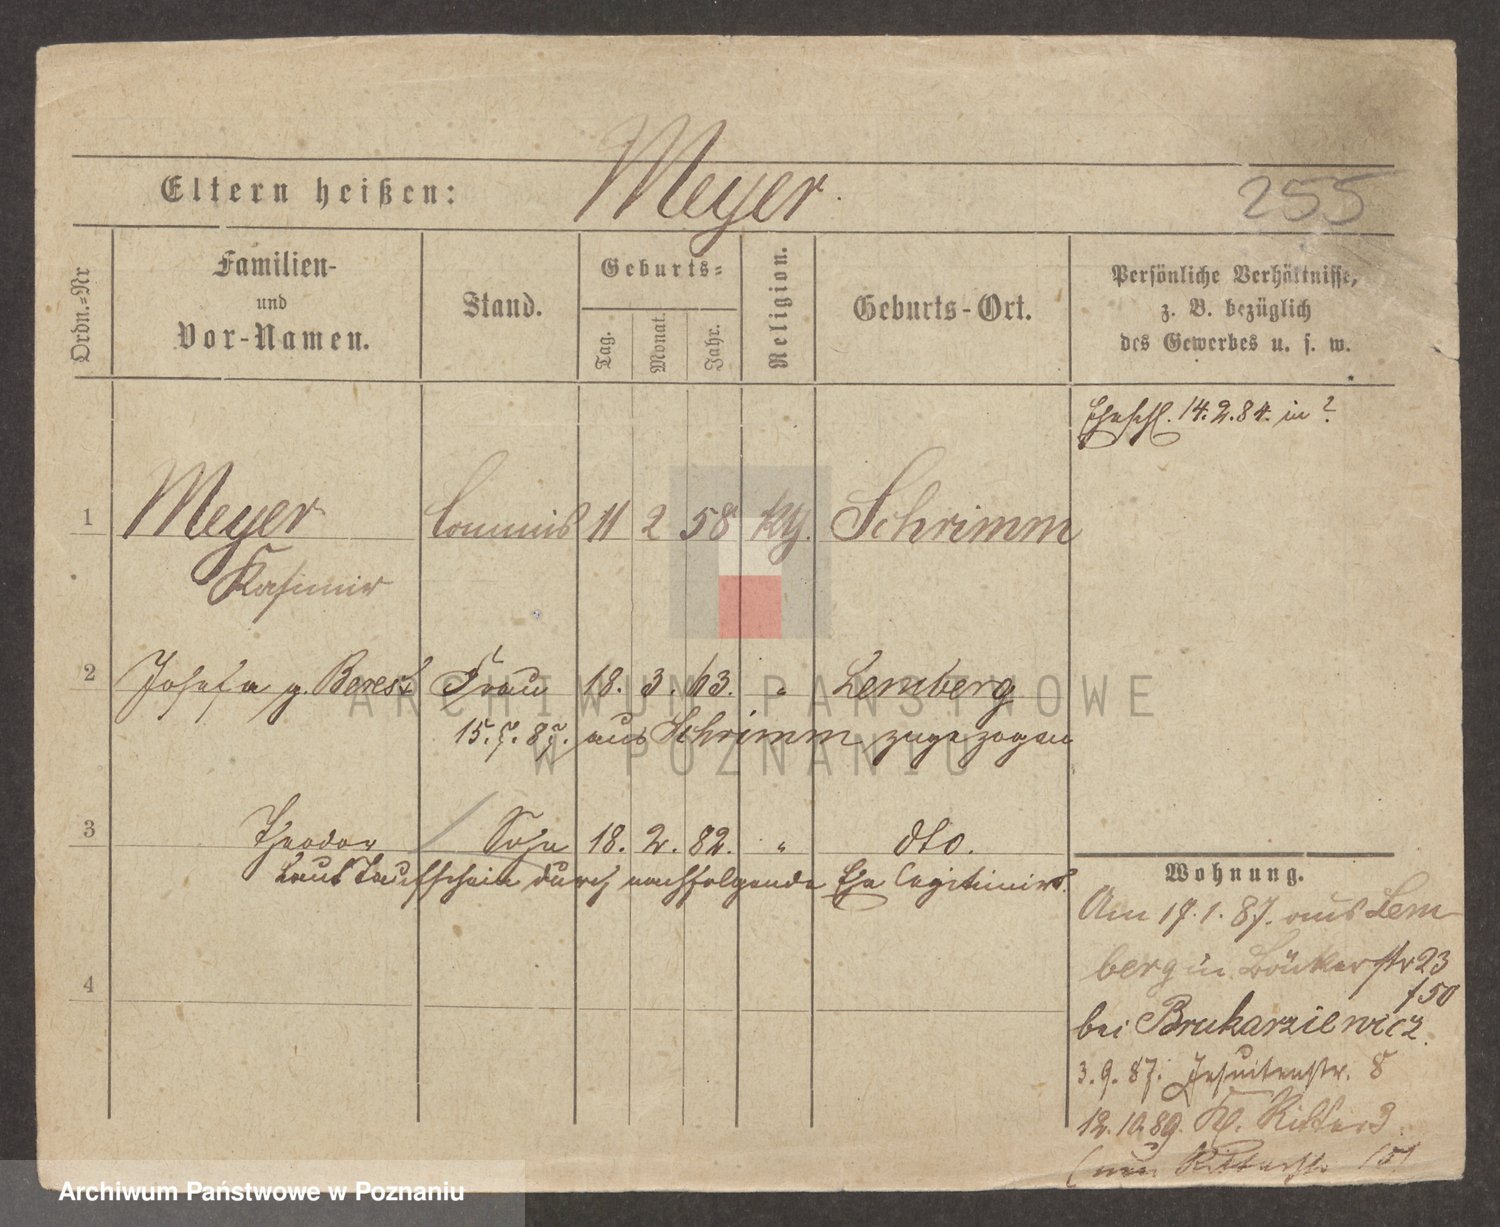 Eltern heißen: Meyer.
255
Ordn.=Nr
Familien-
und
Vor-Namen.
Stand.
Geburts=
Tag.
Monat.
Jahr.
Religion.
Geburts-Ort.
Persönliche Verhältnisse,
z. B. bezüglich
des Gewerbes u. s. w.
Eheschl. 14.2.84. in ?
1 Meyer Commis 11 2 58 kth. Schrimm
Kasimir
2 Josefa g. Berest Frau 18. 3. 63. " Lemberg
15.5.85. aus Schrimm zugezogen
3 Theodor Sohn 18. 2. 82. " dto.
Laut Taufschein durch nachfolgende Ehe legitimirt.
4
Wohnung.
Am 17.1.87. aus Lem-
berg in Bäckerstr 23
f 50
bei Brukarziewicz.
3.9.87. Jesuitenstr. 5
12.10.89. Kl. Ritter 3
ARCHIWUM PAŃSTWOWE
W POZNANIU
Archiwum Państwowe w Poznaniu